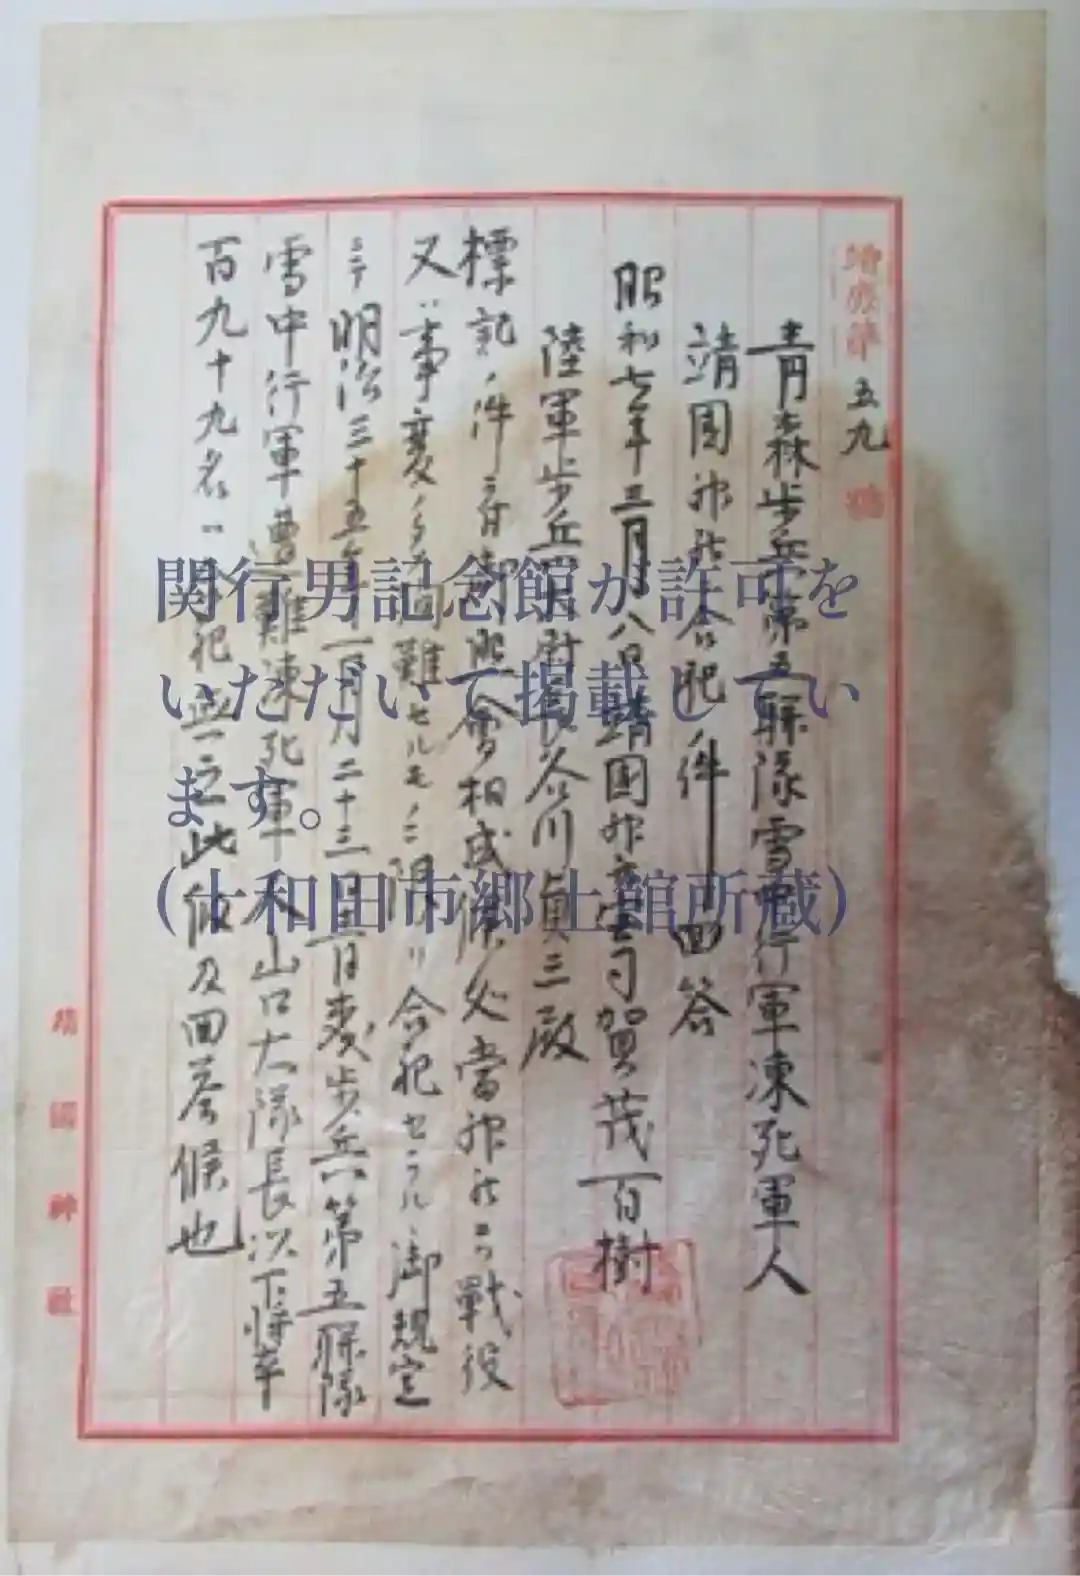 靖庶第五九號
青森歩兵第五聯隊雪中行軍凍死軍人
靖国神社合祀ノ件回答
昭和七年三月八日靖國神社宮司賀茂百樹
陸軍歩兵 尉長谷川貞三殿
標記ノ件ニ付 照會相成候處當神社ニハ戰役
又ハ事變ノタメ 難セルモノニ限リ合祀セラルヽ御規定
ニテ明治三十五年一月二十三日 歩兵第五聯隊
雪中行軍遭難凍死軍人山口大隊長以下将卒
百九十九名ハ合祀無之此段及回答候也
靖國神社
関行男記念館が許可を
いただいて掲載してい
ます。
(十和田市郷土館所蔵)